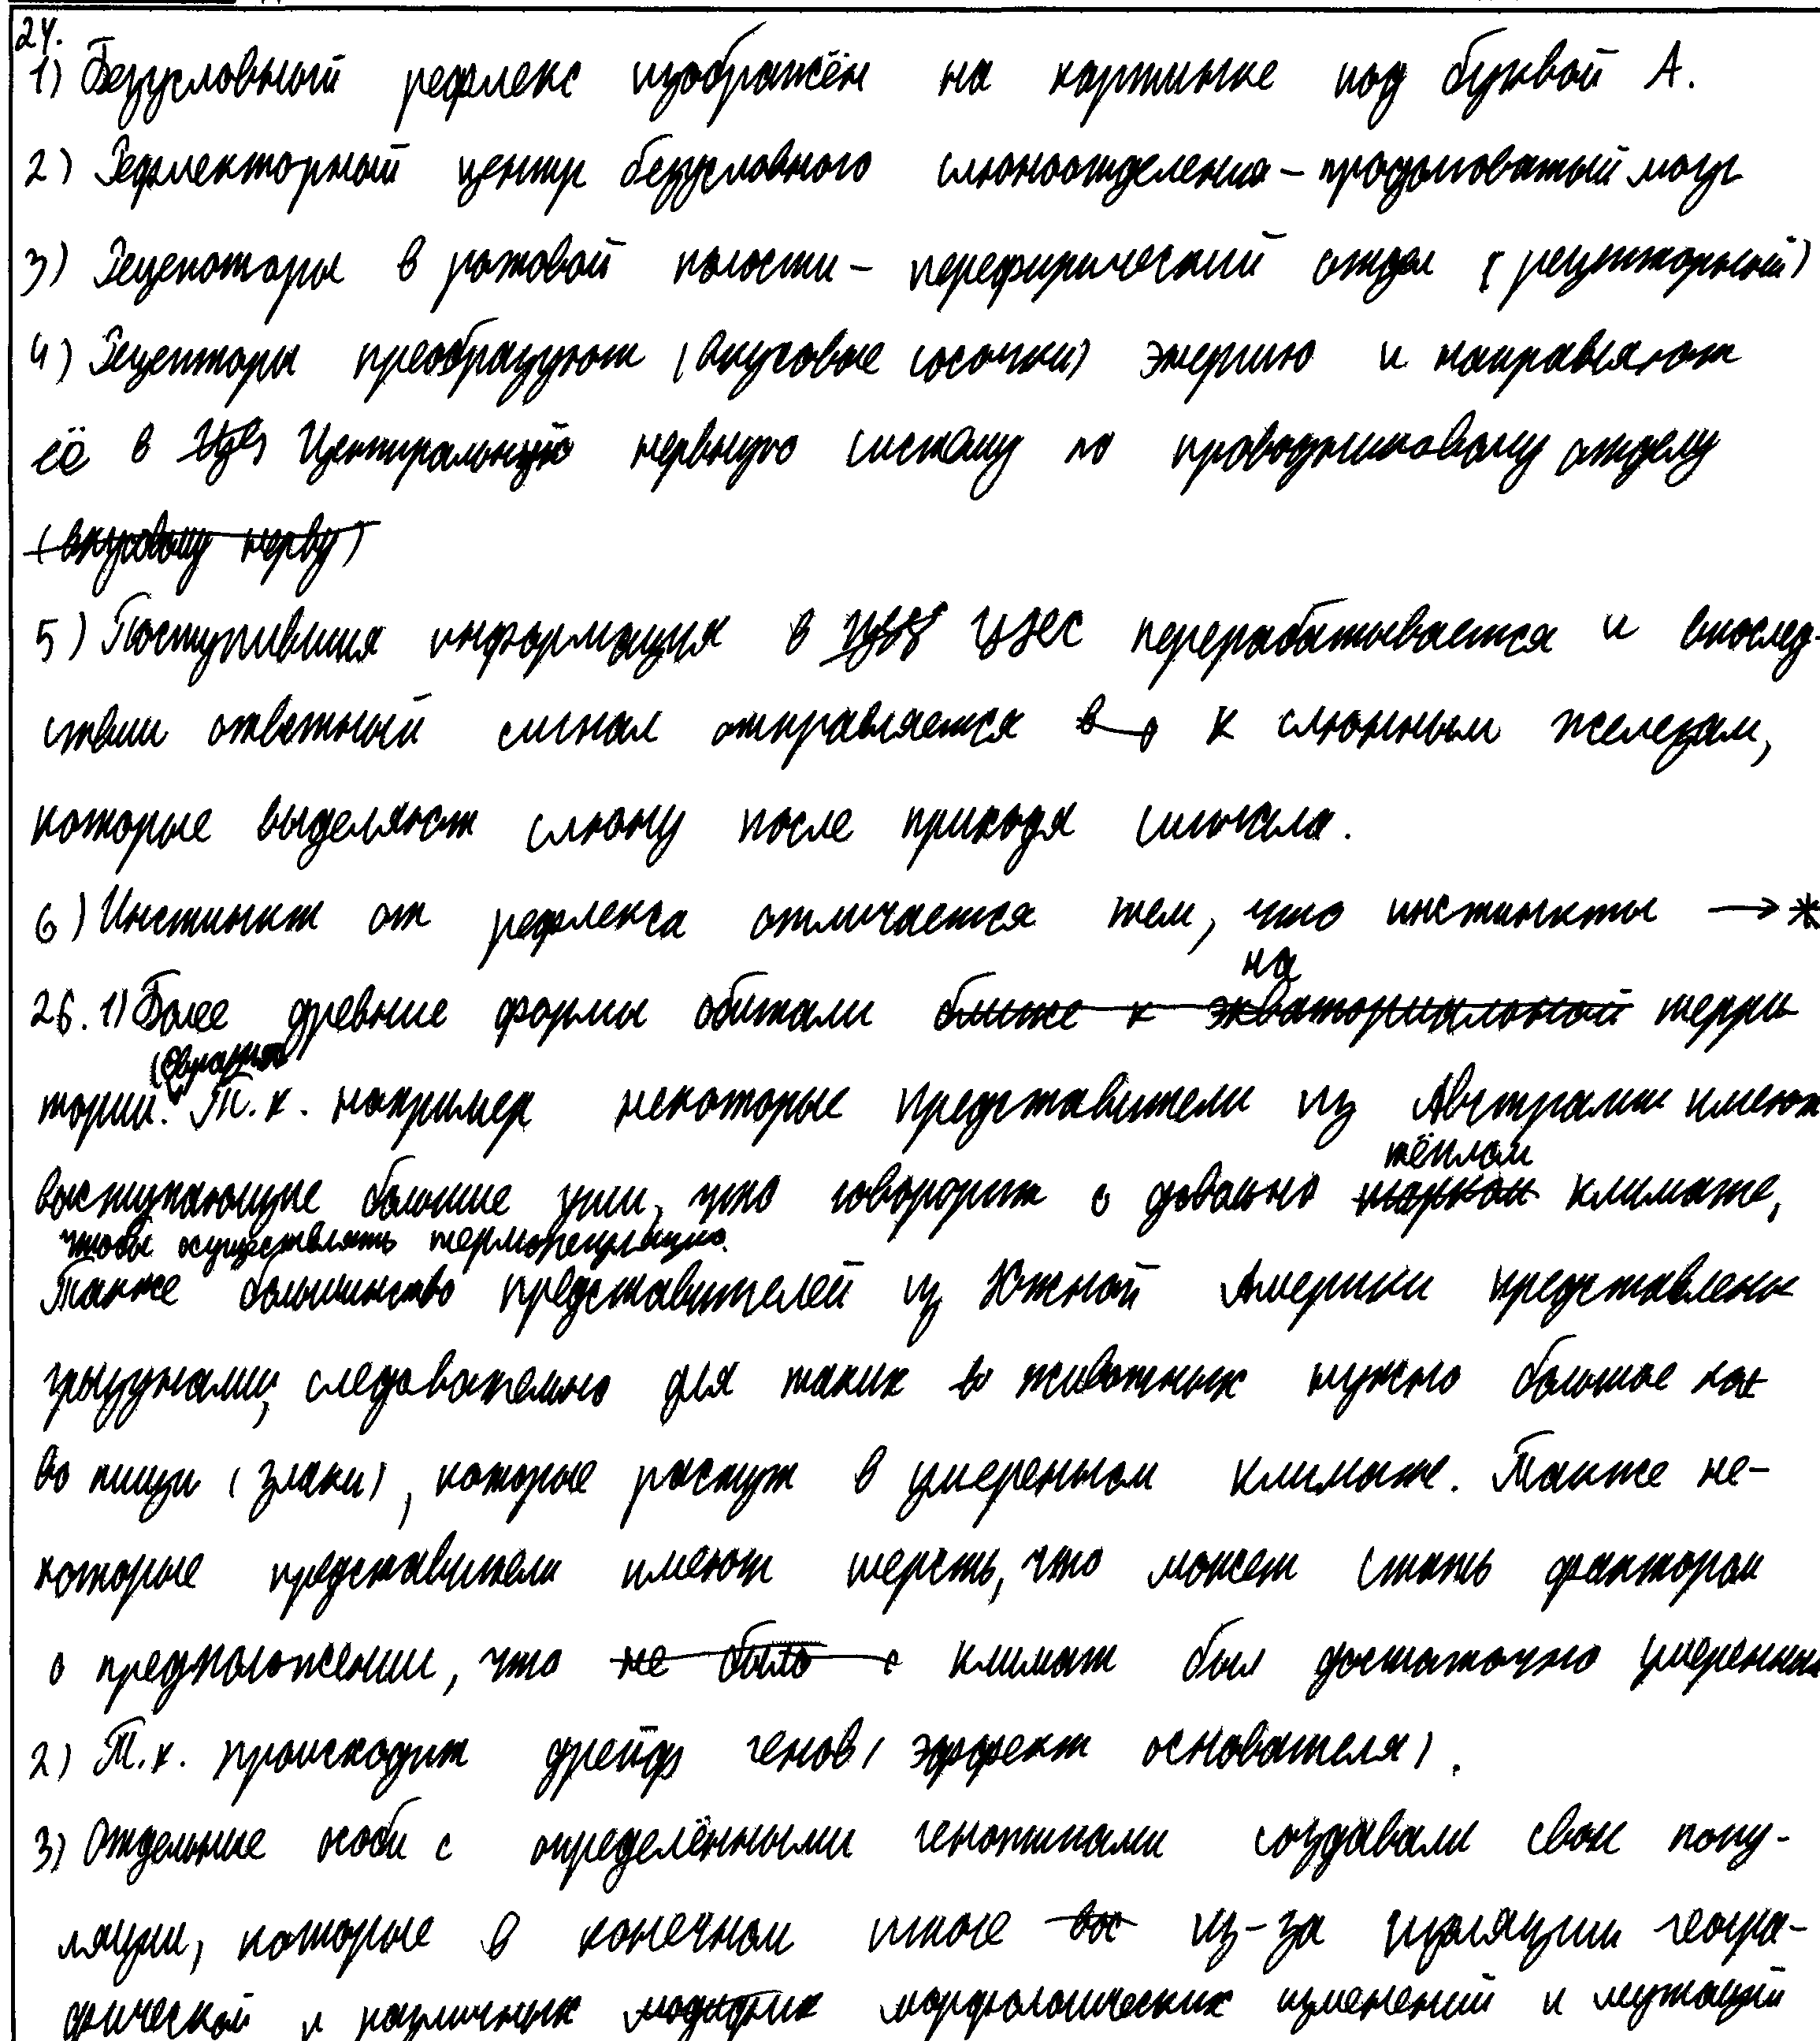 24.
1) Безусловный рефлекс изображён на картинке под буквой А.
2) Рефлекторный центр безусловного слюноотделения – продолговатый мозг
3) Рецепоторы в ротовой полости – перефирический отдел (рецепторный)
4) Рецепторы преобразуют (вкусовые сосочки) энергию и направляют
её в Центральную нервную систему по проводниковому отделу
(вкусовому нерву)
5) Поступившая информация в ЦНС перерабатывается и впослед-
ствии ответный сигнал отправляется к слюнным железам,
которые выделяют слюну после прихода сигнала.
6) Инстинкт от рефлекса отличается тем, что инстинкты → *
на
26. 1) Более древние формы обитали ближе к экваториальной терри
(Евразия
тории. Т.к. например некоторые представители из Австралии имеют
тёплом
выступающие большие уши, что говорорит о довольно жарком климате,
чтобы осуществлять терморегуляцию.
Также большинство представителей из Южной Америки представлены
грызунами, следовательно для таких животных нужно большое кол
во пищи (злаки), которые растут в умеренном климате. Также не-
которые представители имеют шерсть, что может стать фактором
о предположении, что не было с климат был достаточно умеренным
2) Т.к. происходит дрейф генов (эффект основателя).
3) Отдельные особи с определёнными генотипами создавали свои попу-
ляции, которые в конечном итоге из-за изоляции геогра-
фической и различных морфологических изменений и мутаций